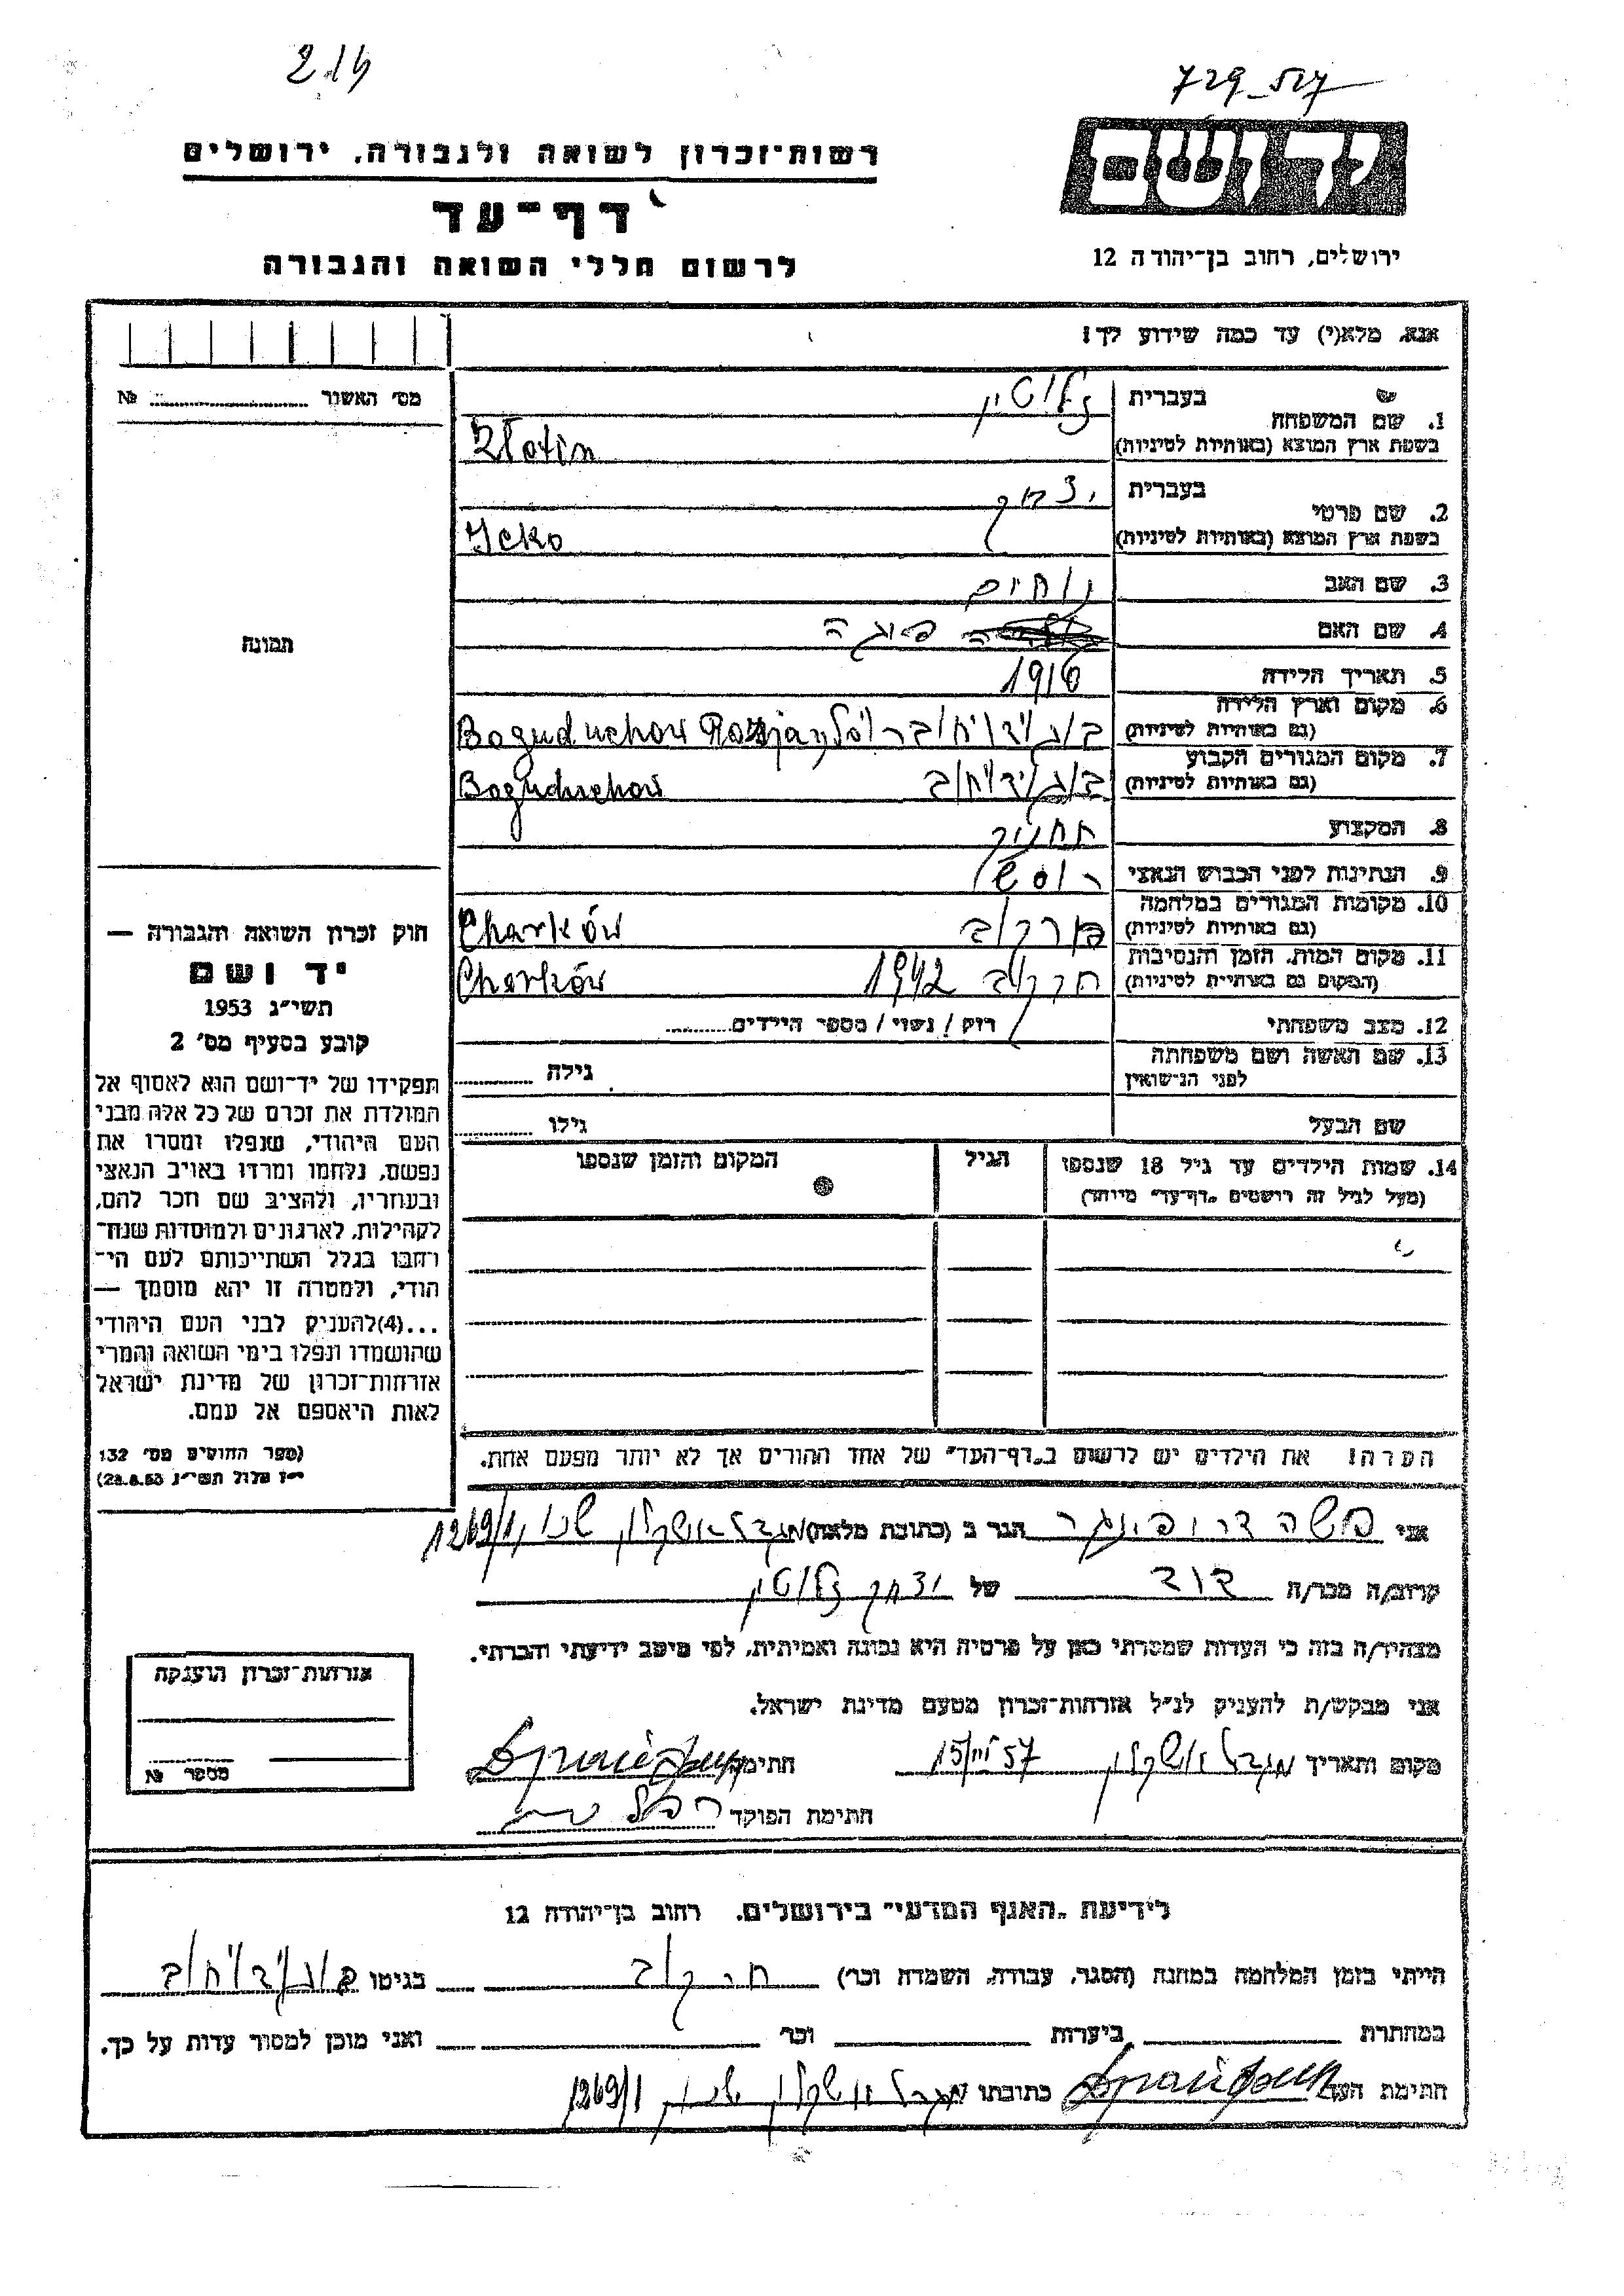 2.14
729-527
יד ושם
רשות־זכרון לשואה ולגבורה, ירושלים
דף־עד
לרשום חללי השואה והגבורה
ירושלים, רחוב בן־יהודה 12
אנא, מלא(י) עד כמה שידוע לך!
מס׳ האשור № 
בעברית זלוטין
1. שם המשפחה
בשפת ארץ המוצא (באותיות לטיניות) Złotin
בעברית יצחק
2. שם פרטי
בשפת ארץ המוצא (באותיות לטיניות) Icko
3. שם האב נחום
4. שם האם
5. תאריך הלידה 1916
6. מקום וארץ הלידה
(גם באותיות לטיניות) בוגודוחוב Boguduchow
7. מקום המגורים הקבוע
(גם באותיות לטיניות) בוגודוחוב Boguduchow
8. המקצוע
9. הנתינות לפני הכבוש הנאצי רוסי
10. מקומות המגורים במלחמה
(גם באותיות לטיניות) חרקוב Charków
11. מקום המות, הזמן והנסיבות
(המקום גם באותיות לטיניות) חרקוב 1942 Charków
12. מצב משפחתי רווק / נשוי / מספר הילדים
13. שם האשה ושם משפחתה
לפני הנישואין גילה
שם הבעל גילו
14. שמות הילדים עד גיל 18 שנספו הגיל המקום והזמן שנספו
(מעל לגיל זה רושמים "דף־עד" מיוחד)
הערה! את הילדים יש לרשום ב"דף־העד" של אחד ההורים אך לא יותר מפעם אחת.
תמונה
חוק זכרון השואה והגבורה —
יד ושם
תשי״ג 1953
קובע בסעיף מס׳ 2
תפקידו של יד־ושם הוא לאסוף אל
המולדת את זכרם של כל אלה מבני
העם היהודי, שנפלו ומסרו את
נפשם, נלחמו ומרדו באויב הנאצי
ובעוזריו, ולהציב שם וזכר להם,
לקהילות, לארגונים ולמוסדות שנח־
רבו בגלל השתייכותם לעם הי־
הודי, ולמטרה זו יהא מוסמך —
...(4)להעניק לבני העם היהודי
שהושמדו ונפלו בימי השואה והמרי
אזרחות־זכרון של מדינת ישראל
לאות היאספם אל עמם.
(ספר החוקים מס׳ 132
י״ז אלול תשי״ג 28.8.53)
אני הגר ב (כתובת מלאה) מגדל אשקלון 1269/1
קרוב/ה מכר/ה דוד של יצחק זלוטין
מצהיר/ה בזה כי העדות שמסרתי כאן על פרטיה היא נכונה ואמיתית, לפי מיטב ידיעתי והכרתי.
אני מבקש/ת להעניק לנ״ל אזרחות־זכרון מטעם מדינת ישראל.
מקום ותאריך מגדל אשקלון 57 חתימה
חתימת הפוקד
אזרחות־זכרון הוענקה
מספר №
לידיעת "האגף המדעי" בירושלים, רחוב בן־יהודה 12
הייתי בזמן המלחמה במחנה (הסגר, עבודה, השמדה וכו׳) חרקוב בגיטו בוגודוחוב
במחתרת ביערות וכו׳ ואני מוכן למסור עדות על כך.
חתימת העד כתובתו מגדל אשקלון 1269/1